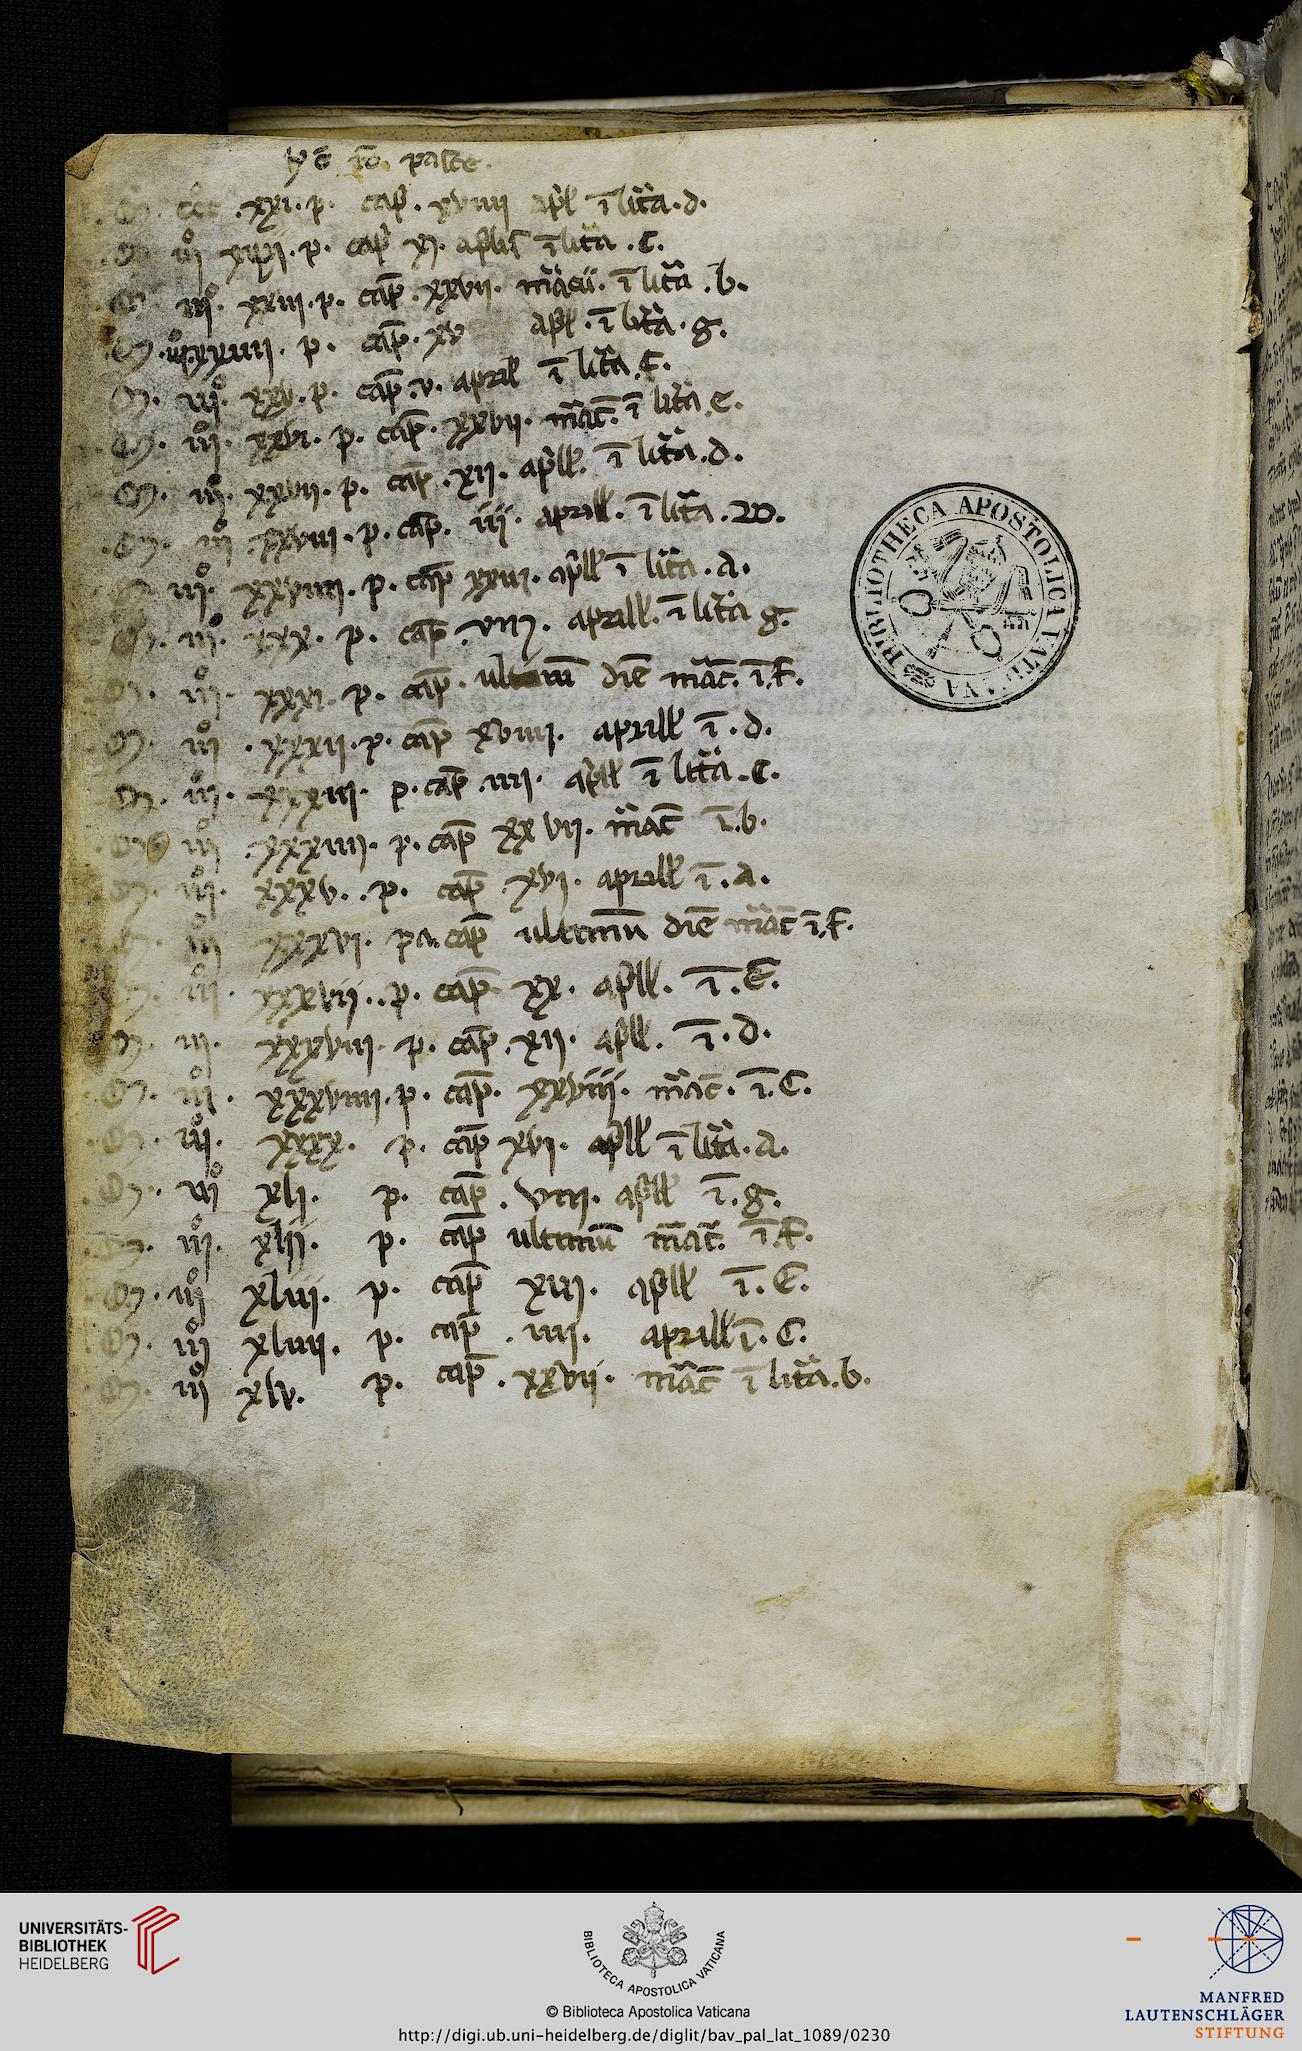 pasce.
ccc .xxi. p. cap̄. xviiii apl̄ ī lit̄a .d.
iii° xxii. p. cap̄ xi. aplis ī lit̄a .c.
iii°. xxiii. p. cap̄. xxvii. m̄acii. ī lit̄a .b.
m. iii°. xxiiii. p. cap̄. xv apl̄. ī lit̄a. g.
m. iii°. xxv. p. cap̄. v. april̄ ī lit̄a.
m. iii°. xxvi. p. cap̄. xxvii. m̄ac̄. ī lit̄a .e.
m. iii°. xxvii. p. cap̄. xii. apll̄. ī lit̄a .d.
m. iii° xxviii. p. cap̄. iii. aprill̄. ī lit̄a .
m. iii°. xxviiii. p. cap̄ xxiii. apll̄ ī lit̄a .a.
m. iii°. xxx. p. cap̄. viii. aprill̄. ī lit̄a g.
m. iii°. xxxi. p. cap̄. ultimū diē m̄ac̄. ī .f.
m. iii° . xxxii. p. cap̄ xviiii. aprill̄ ī .d.
m. iii°. xxxiii. p. cap̄ .iiii. apll̄ ī lit̄a .c.
m iii° .xxxiiii. p. cap̄ xxvii. m̄ac̄ ī .b.
m. iii°. xxxv. .p. cap̄ .xvi. aprill̄ ī .a.
m. iii° xxxvi. pa. cap̄ ultimū diē m̄ac̄ ī .f.
m. iii°. xxxvii. .p. cap̄ xx. apll̄. ī .e.
m. iii. xxxviii. p. cap̄. xii. apll̄. ī .d.
m. iii°. xxxviiii. p. cap̄. xxviii. m̄ac̄. ī .c.
m. iii°. xxxx. p. cap̄ xvi. apll̄ ī lit̄a .a.
m. iii° xli. p. cap̄ . viii. apll̄ ī .g.
m. iii°. xlii. p. cap̄ ultimū m̄ac̄. ī .f.
m. iii° xliii. p. cap̄ xiii. apll̄ ī .e.
m. iii° xliiii. p. cap̄ . iiii. aprill̄ ī .c.
m. iii° xlv. p. cap̄ . xxvii. m̄ac̄ ī lit̄a .b.
BIBLIOTHECA APOSTOLICA VATICANA
UNIVERSITÄTS-
BIBLIOTHEK
HEIDELBERG
BIBLIOTECA APOSTOLICA VATICANA
© Biblioteca Apostolica Vaticana
http://digi.ub.uni-heidelberg.de/diglit/bav_pal_lat_1089/0230
MANFRED
LAUTENSCHLÄGER
STIFTUNG